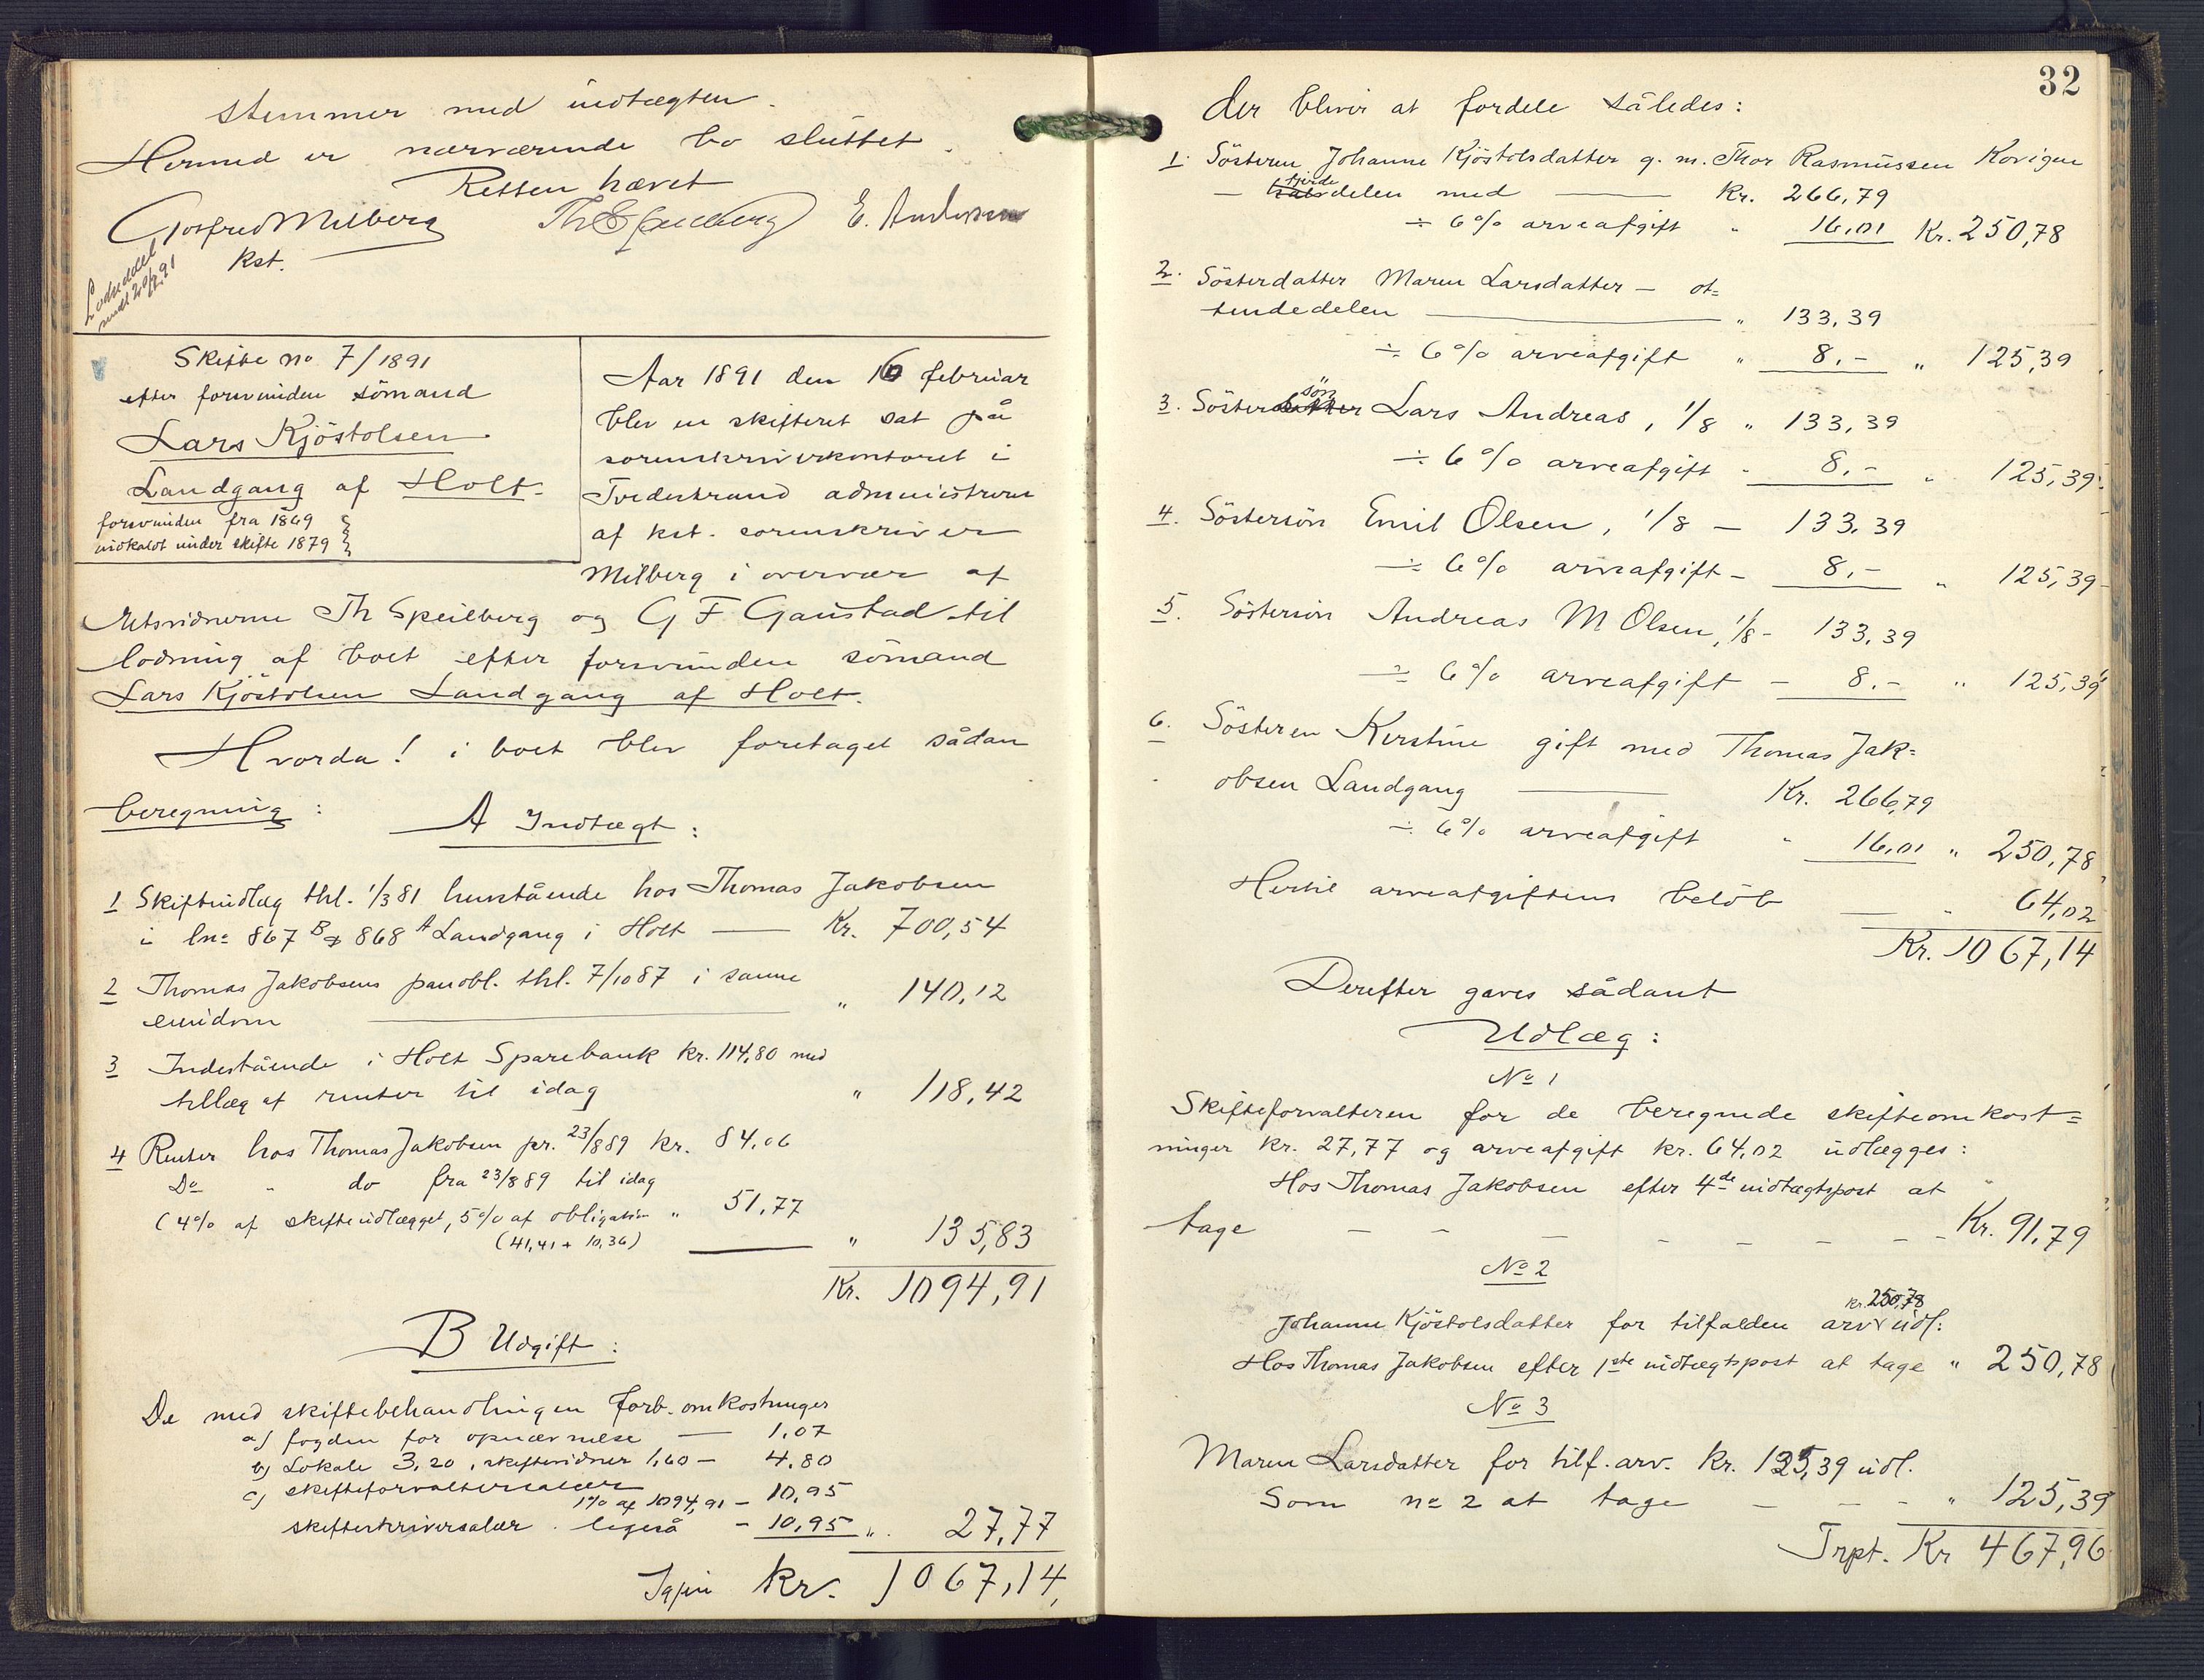 stemmer med indtægten.
Hermed er nærværende bo sluttet.
Retten hævet
Gotfred Milberg Th Speilberg E. Andersen
kst.
Loddeddel
sendt 20/2 91
Skifte no 7/1891
efter forsvunden sömand
Lars Kjöstolsen
Landgang af Holt.
forsvunden fra 1869
indkaldt under skifte 1879
Aar 1891 den 16 februar
blev en skifteret sat på
sorenskriverkontoret i
Tvedestrand administreret
af kst. sorenskriver
Milberg i overvær af
retsvidnerne Th Speilberg og G F Gaustad til
lodning af boet efter forsvunden sömand
Lars Kjöstolsen Landgang af Holt.
Hvorda! i boet blev foretaget sådan
beregning:
A Indtægt:
1 Skifteudlæg thl. 1/3 81 henstående hos Thomas Jakobsen
i lno 867 B & 868 A Landgang i Holt — Kr. 700,54
2 Thomas Jakobsens panobl. thl. 7/10 87 i samme
eiendom " 140,12
3 Indestående i Holt Sparebank kr. 114,80 med
tillæg af renter til idag " 118,42
4 Renter hos Thomas Jakobsen pr. 23/8 89 kr. 84,06
Do " do fra 23/8 89 til idag
(4% af skifteudlægget, 5% af obligation " 51,77
(41,41 + 10,36) — " 135,83
Kr. 1094,91
B Udgift:
De med skiftebehandlingen forb. omkostninger
a) fogden for opnævnelse — 1,07
b) Lokale 3,20, skiftevidner 1,60 — 4,80
c) skifteforvaltersalær
1% af 1094,91 — 10,95
skifteskriversalær. ligeså — 10,95 " 27,77
Igjen kr. 1067,14,
32
der bliver at fordele således:
1. Sösteren Johanne Kjöstolsdatter g. m. Thor Rasmussen Kovigen
— fjerdedelen med — Kr. 266,79
÷ 6% arveafgift " 16,01 Kr. 250,78
2. Sösterdatter Maren Larsdatter — ot=
tendedelen — " 133,39
÷ 6% arveafgift " 8.- " 125,39
3. Söstersön Lars Andreas, 1/8 " 133,39
÷ 6% arveafgift - 8.- " 125,39
4. Söstersön Emil Olsen, 1/8 — 133,39
÷ 6% arveafgift - 8.- " 125,39
5. Söstersön Andreas M Olsen, 1/8 - 133,39
÷ 6% arveafgift - 8.- " 125,39
6. Sösteren Kerstine gift med Thomas Jak=
obsen Landgang — Kr. 266,79
÷ 6% arveafgift - 16,01 " 250,78
Hertil arveafgiftens belöb — " 64,02
Kr. 1067,14
Derefter gaves sådant
Udlæg:
No 1
Skifteforvalteren for de beregnede skifteomkost=
ninger kr. 27,77 og arveafgift kr. 64,02 udlægges:
Hos Thomas Jakobsen efter 4de indtægtspost at
tage — — — — — — — Kr. 91,79
No 2
kr. 250,78
Johanne Kjöstolsdatter for tilfalden arv udl:
Hos Thomas Jakobsen efter 1ste indtægtspost at tage " 250,78
No 3
Maren Larsdatter for tilf. arv. kr. 125,39 udl.
Som no 2 at tage — — — " 125,39
Trpt. Kr 467,96